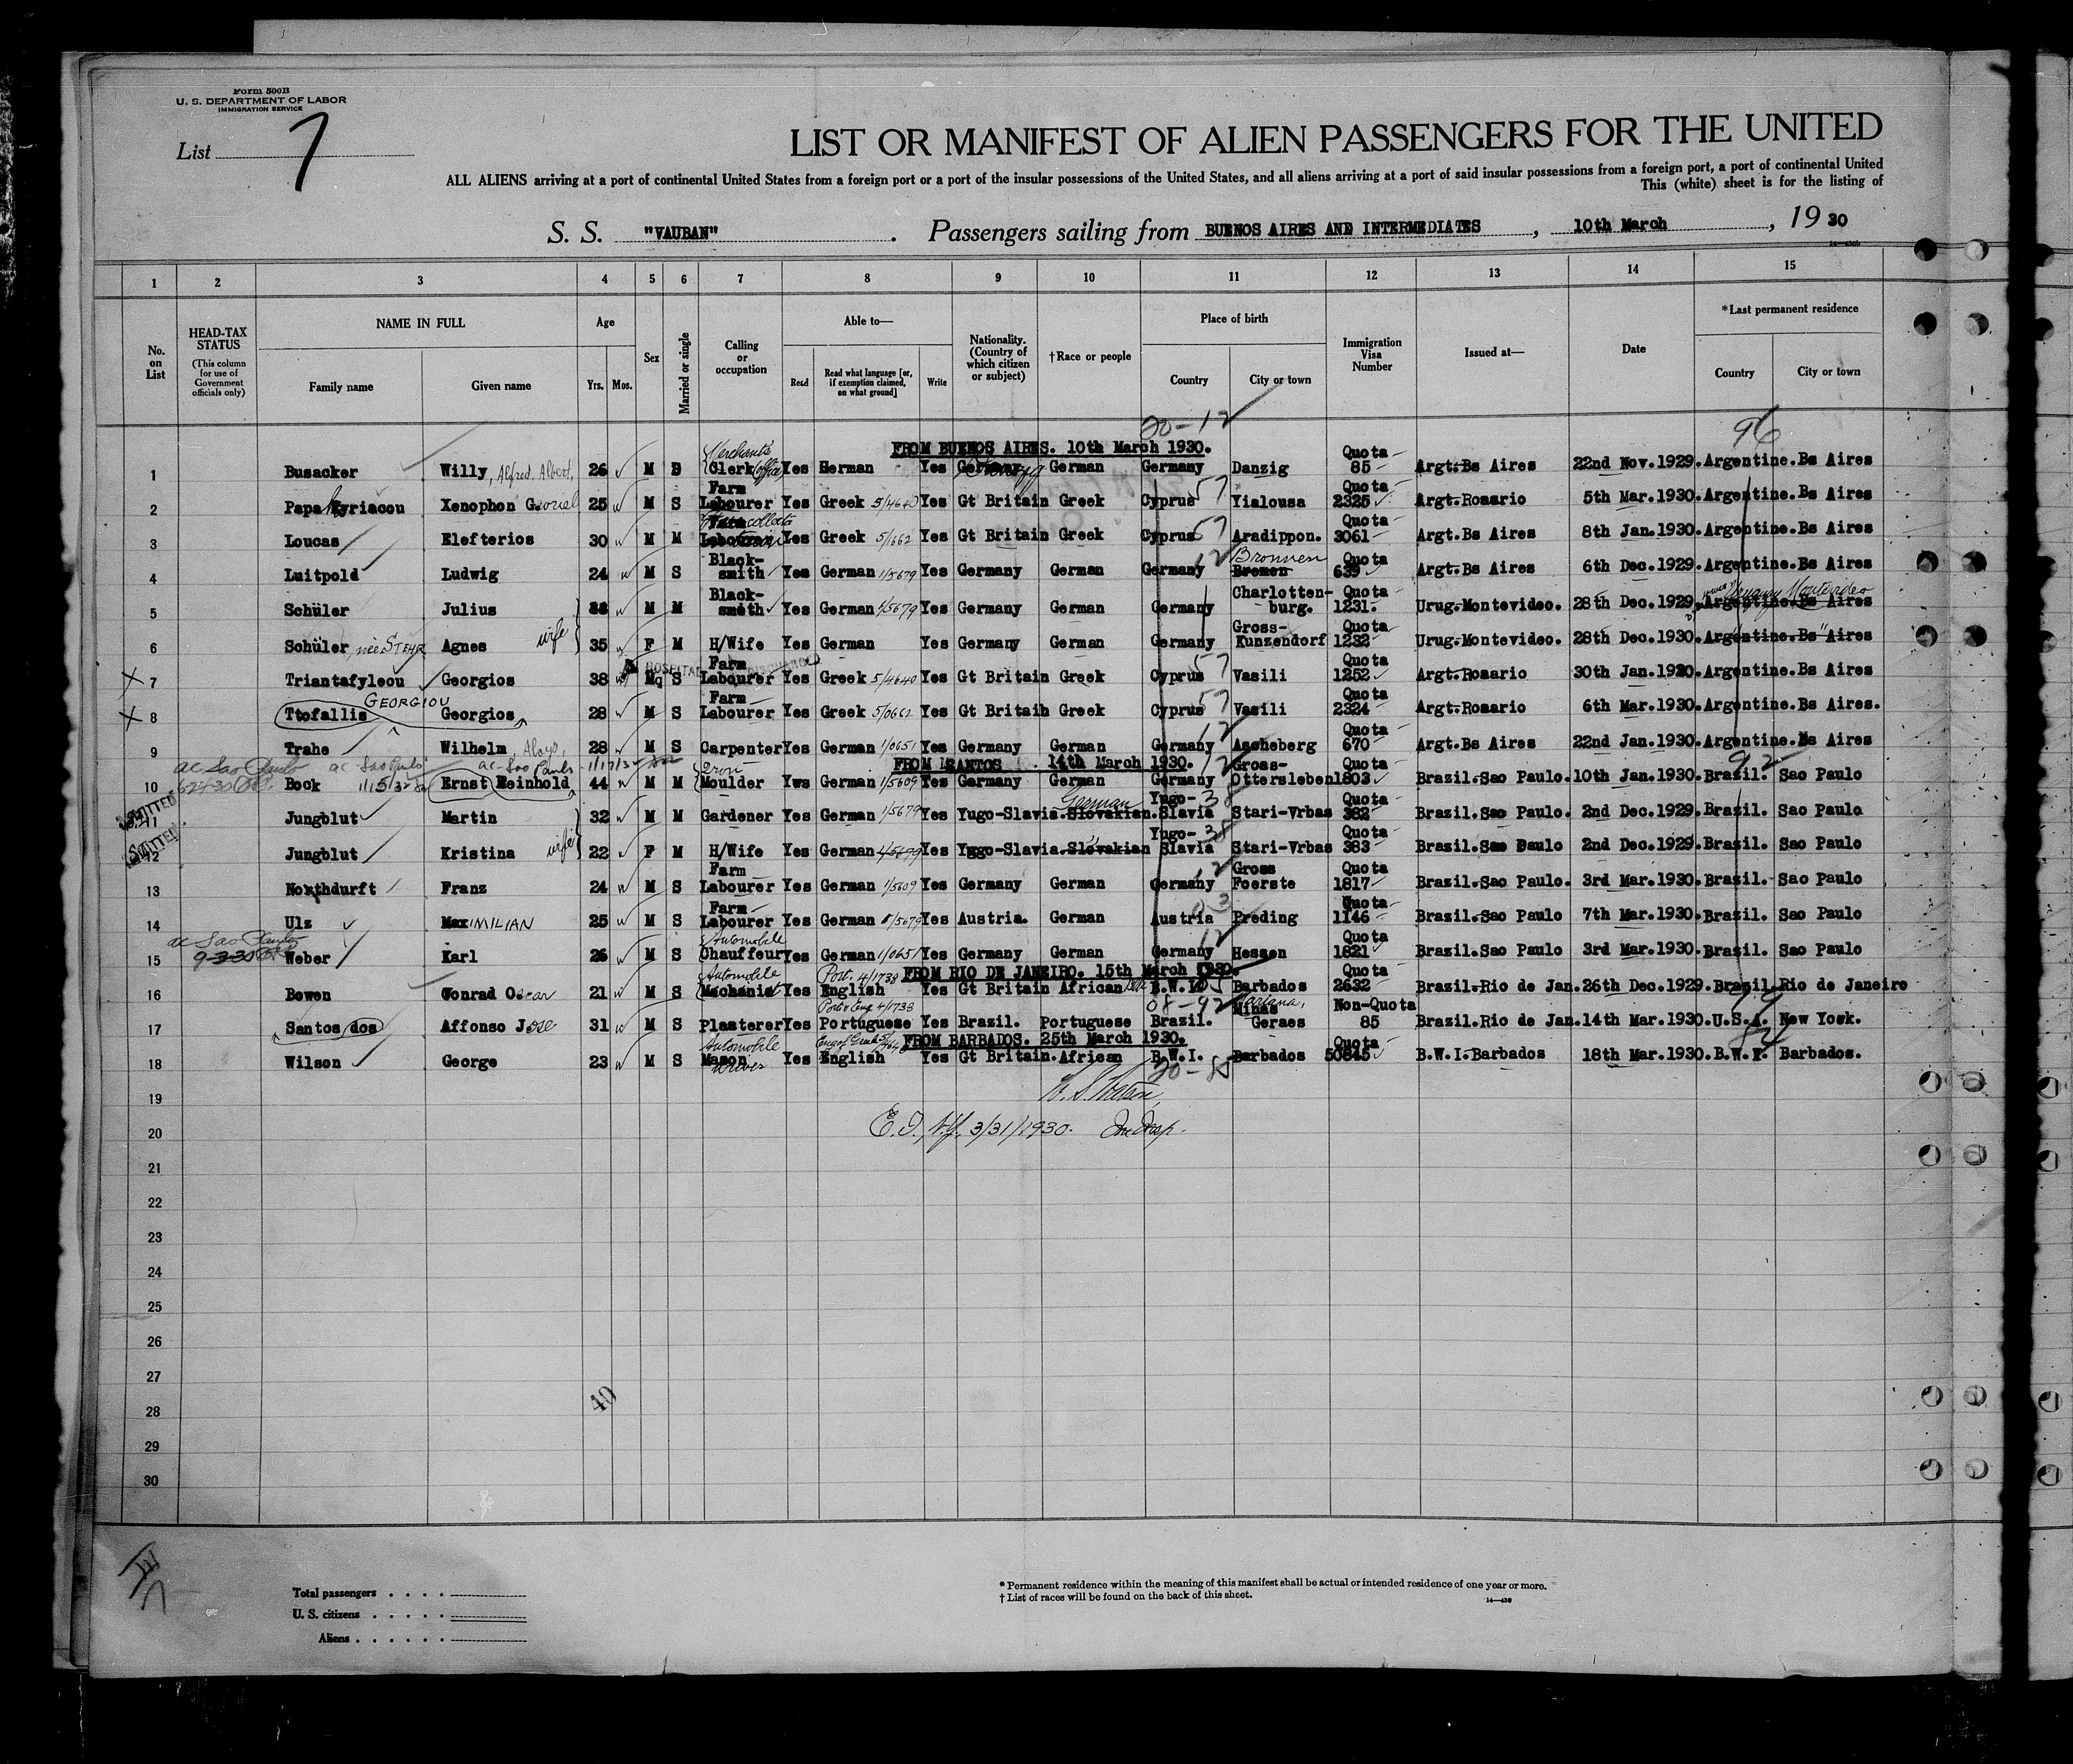 Form 500B
U. S. DEPARTMENT OF LABOR
IMMIGRATION SERVICE
List 7
LIST OR MANIFEST OF ALIEN PASSENGERS FOR THE UNITED
ALL ALIENS arriving at a port of continental United States from a foreign port or a port of the insular possessions of the United States, and all aliens arriving at a port of said insular possessions from a foreign port, a port of continental United
This (white) sheet is for the listing of
S. S. "VAUBAN". Passengers sailing from BUENOS AIRES AND INTERMEDIATES, 10th March, 19 30
1 2 3 4 5 6 7 8 9 10 11 12 13 14 15
No. on List
HEAD-TAX STATUS
(This column for use of Government officials only)
NAME IN FULL
Family name Given name
Age
Yrs. Mos.
Sex
Married or single
Calling or occupation
Able to—
Read
Read what language [or, if exemption claimed, on what ground]
Write
Nationality. (Country of which citizen or subject)
†Race or people
Place of birth
Country City or town
Immigration Visa Number
Issued at—
Date
*Last permanent residence
Country City or town
20-12 96
FROM BUENOS AIRES. 10th March 1930.
1 Busacker Willy, Alfred, Albert, 26 M S Merchants Clerk (office) Yes German Yes Germany Danzig German Germany Danzig Quota 85 Argt. Bs Aires 22nd Nov. 1929. Argentine. Bs Aires
2 Papa Kyriacou Xenophon G. 25 M S Farm Labourer Yes Greek 5/4640 Yes Gt Britain Greek Cyprus 57 Yialousa Quota 2325 Argt. Rosario 5th Mar. 1930. Argentine. Bs Aires
3 Loucas Elefterios 30 M M Farm Labourer Yes Greek 5/662 Yes Gt Britain Greek Cyprus 57 Aradippon. Quota 3061 Argt. Bs Aires 8th Jan. 1930. Argentine. Bs Aires
4 Luitpold Ludwig 24 M S Black-smith Yes German 1/5679 Yes Germany German Germany 12 Bremen Bronnen Quota 639 Argt. Bs Aires 6th Dec. 1929. Argentine. Bs Aires
5 Schüler Julius M M Black-smith Yes German 1/5679 Yes Germany German Germany Charlotten-burg. Quota 1231. Urug. Montevideo. 28th Dec. 1929. Argentine. Bs Aires Uruguay Montevideo
6 Schüler, neé STEHR Agnes wife 35 F M H/Wife Yes German Yes Germany German Germany Gross-Kunzendorf Quota 1232 Urug. Montevideo. 28th Dec. 1930. Argentine. Bs Aires
HOSPITAL DISCHARGED
X 7 Triantafyleou Georgios 38 M S Farm Labourer Yes Greek 5/4640 Yes Gt Britain Greek Cyprus 57 Vasili Quota 1252 Argt. Rosario 30th Jan. 1930. Argentine. Bs Aires
GEORGIOU
X 8 Ttofallis Georgios 28 M S Farm Labourer Yes Greek 5/0662 Yes Gt Britain Greek Cyprus 57 Vasili Quota 2324 Argt. Rosario 6th Mar. 1930. Argentine. Bs Aires.
9 Trahe Wilhelm, Aloys, 28 M S Carpenter Yes German 1/0651 Yes Germany German Germany 12 Ascheberg Quota 670 Argt. Bs Aires 22nd Jan. 1930. Argentine. Bs Aires
ac Sao Paulo ac Sao Paulo ac Sao Paulo
FROM SANTOS 14th March 1930. 92
10 Bock 1/15/32 Ernst Reinhold 44 M M Iron Moulder Yws German 1/5609 Yes Germany German Germany 12 Gross-Ottersleben Quota 1803 Brazil. Sao Paulo. 10th Jan. 1930. Brazil. Sao Paulo
ADMITTED
11 Jungblut Martin 32 M M Gardener Yes German 1/5679 Yes Yugo-Slavia. Slovakian. German Yugo-Slavia 38 Stari-Vrbas Quota 382 Brazil. Sao Paulo. 2nd Dec. 1929. Brazil. Sao Paulo
ADMITTED
12 Jungblut Kristina wife 22 F M H/Wife Yes German 1/5679 Yes Yugo-Slavia. Slovakian Yugo-Slavia 38 Stari-Vrbas Quota 383 Brazil. Sao Paulo 2nd Dec. 1929. Brazil. Sao Paulo
13 Nothdurft Franz 24 M S Farm Labourer Yes German 1/5609 Yes Germany German Germany 12 Gross Foerste Quota 1817 Brazil. Sao Paulo. 3rd Mar. 1930. Brazil. Sao Paulo
14 Ulz MaxIMILIAN 25 M S Farm Labourer Yes German 1/5679 Yes Austria. German Austria 03 Preding Quota 1146 Brazil. Sao Paulo 7th Mar. 1930. Brazil. Sao Paulo
ac Sao Paulo
9-3-30
15 Weber Karl 26 M S Automobile Chauffeur Yes German 1/0651 Yes Germany German Germany 12 Hessen Quota 1821 Brazil. Sao Paulo 3rd Mar. 1930. Brazil. Sao Paulo
FROM RIO DE JANEIRO. 15th March 1930.
16 Bowen Conrad Oscar 21 M S Automobile Mechanist Yes Port. 4/1738 English Yes Gt Britain African B.W.I. Barbados Quota 2632 Brazil. Rio de Jan. 26th Dec. 1929. Brazil. Rio de Janeiro
08-92
17 Santos dos Affonso Jose 31 M S Plasterer Yes Port & Eng 4/1738 Portuguese Yes Brazil. Portuguese Brazil. Mariana, Minas Geraes Non-Quota 85 Brazil. Rio de Jan. 14th Mar. 1930. U.S.A. New York.
FROM BARBADOS. 25th March 1930.
18 Wilson George 23 M S Automobile Mason Driver Yes English Yes Gt Britain. African B.W.I. Barbados Quota 50845 B.W.I. Barbados 18th Mar. 1930. B.W.I. Barbados.
19
20 E.I., N.Y. 3/31/1930. Imm Insp.
21
22
23
24
25
26
27
28
29
30
40
Total passengers
U. S. citizens
Aliens
* Permanent residence within the meaning of this manifest shall be actual or intended residence of one year or more.
† List of races will be found on the back of this sheet.